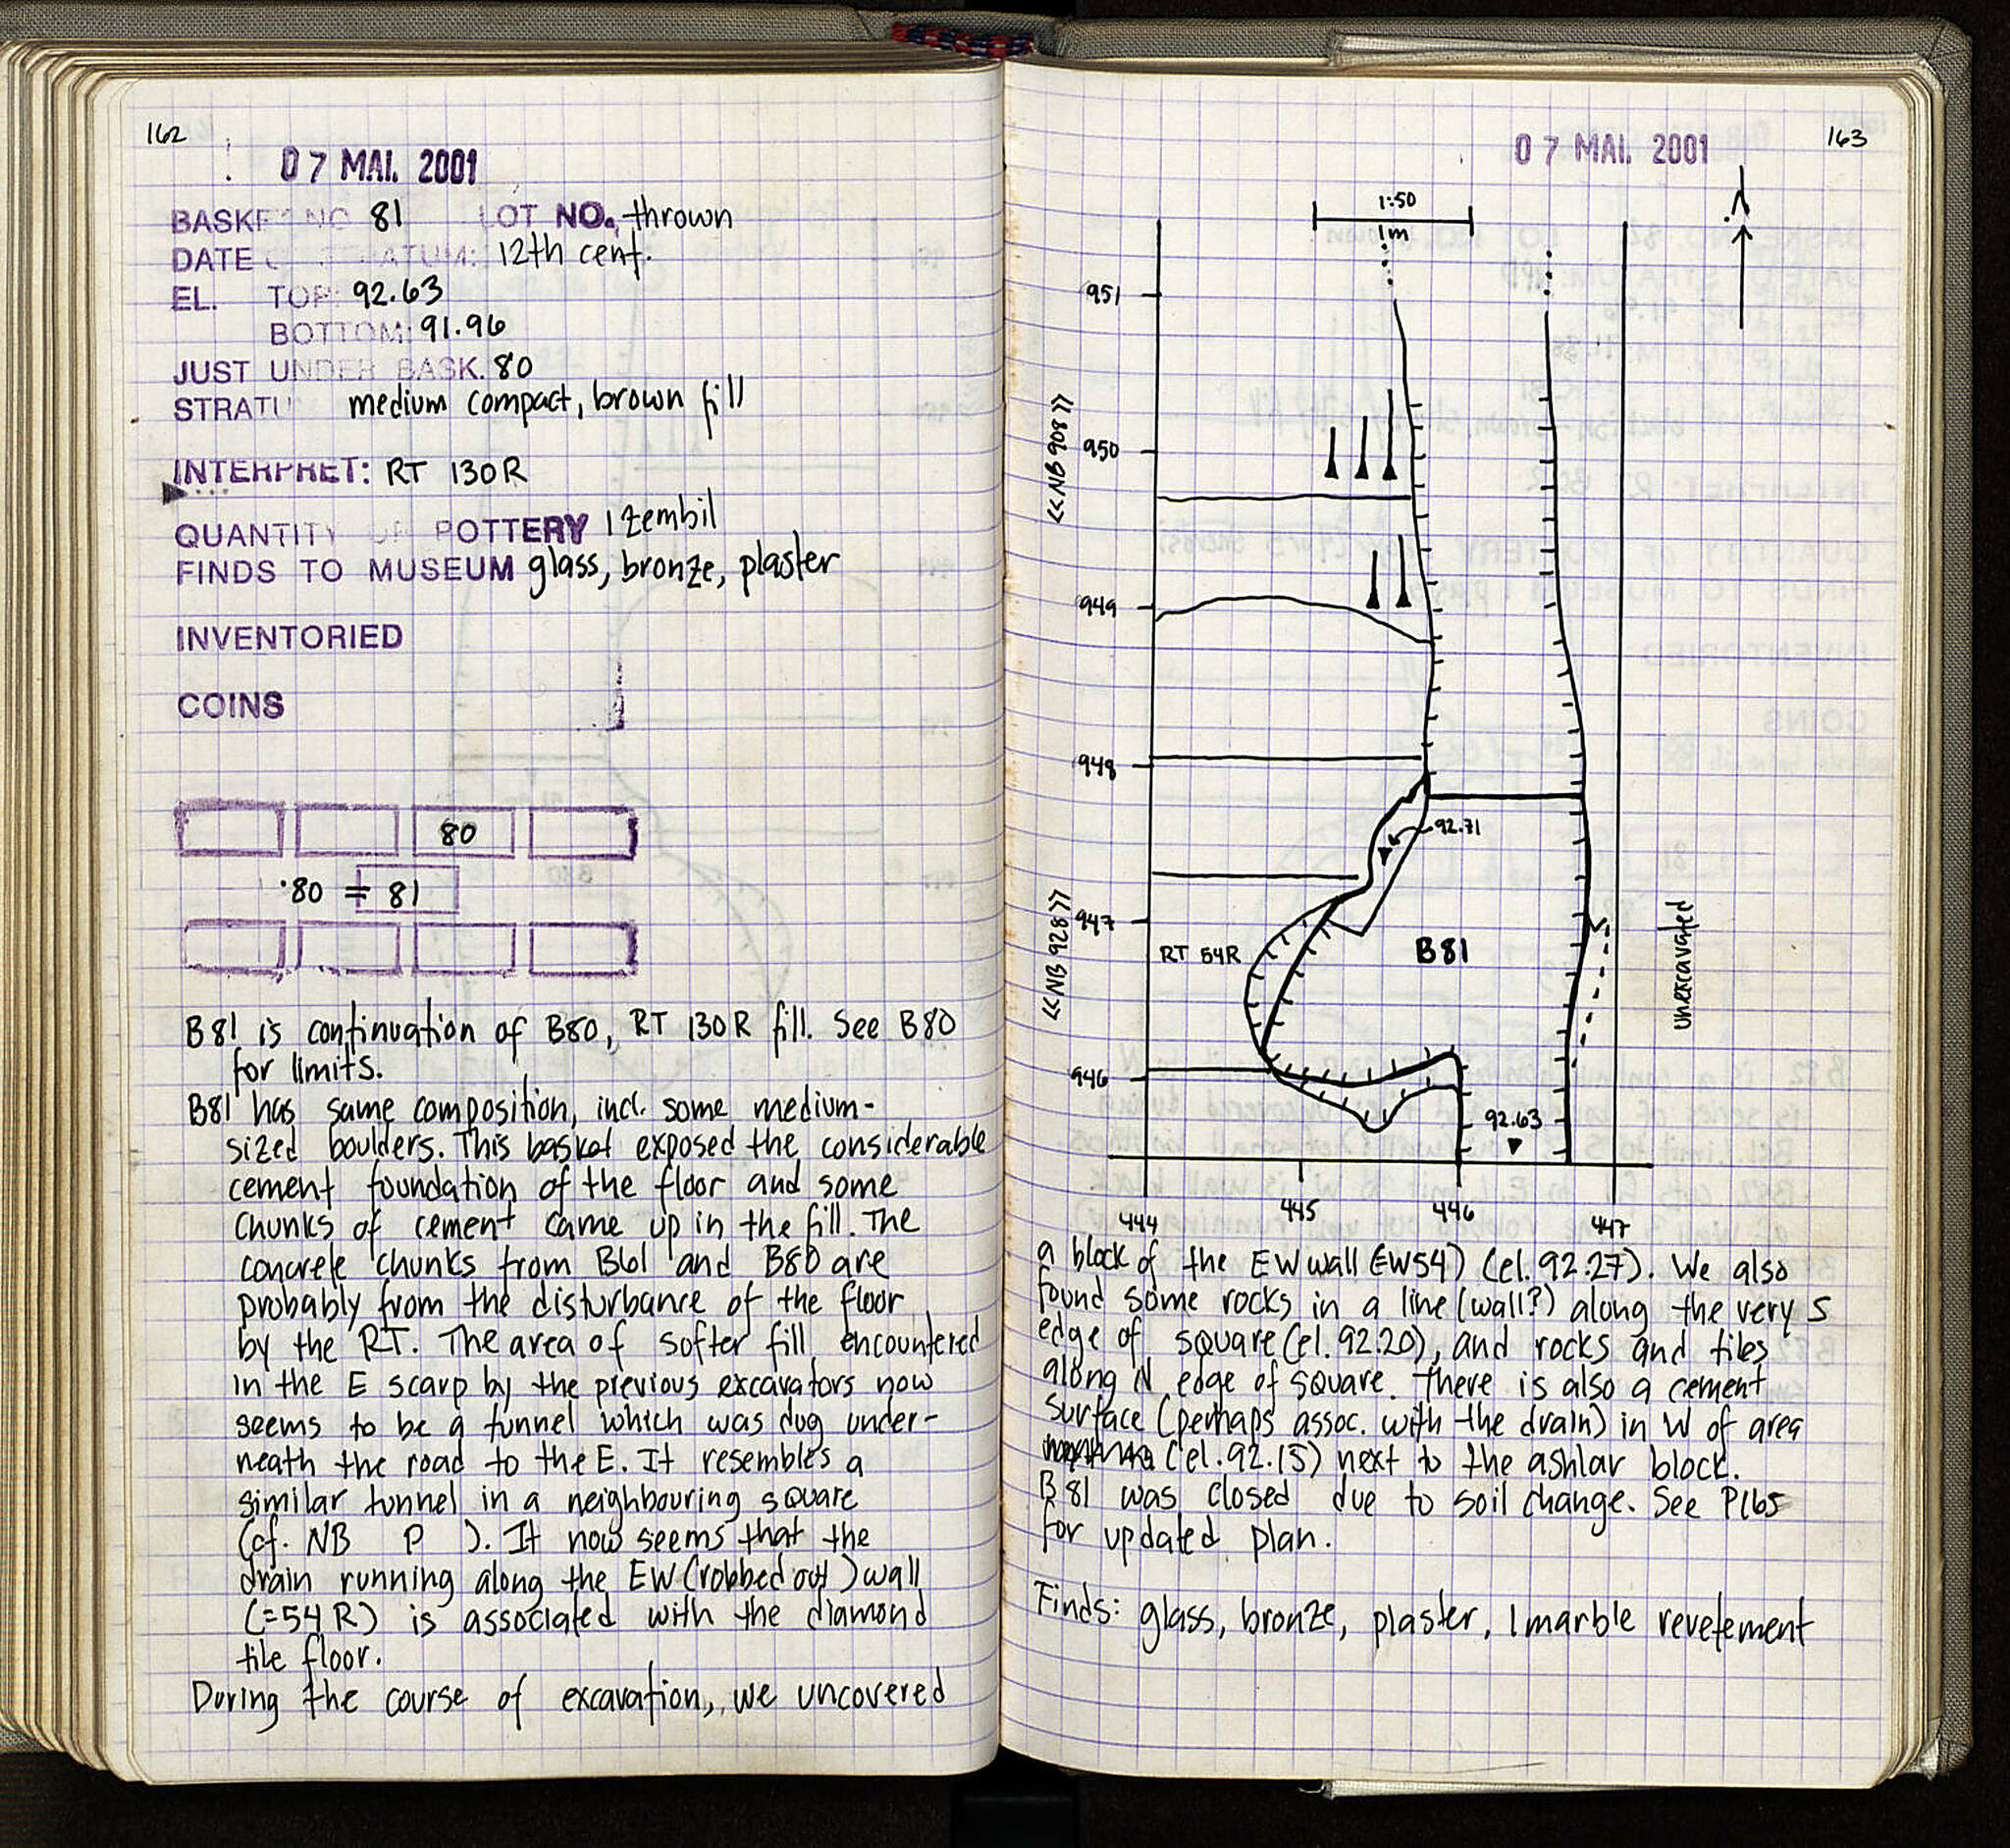 162
07 MAI. 2001
BASKET NO 81 LOT NO. thrown
DATE OF STRATUM: 12th cent.
EL. TOP: 92.63
BOTTOM: 91.96
JUST UNDER BASK. 80
STRATU medium compact, brown fill
INTERPRET: RT 130R
QUANTITY OF POTTERY 1 zembil
FINDS TO MUSEUM glass, bronze, plaster
INVENTORIED
COINS
80
80 = 81
B81 is continuation of B80, RT 130R fill. See B80
for limits.
B81 has same composition, incl. some medium-
sized boulders. This basket exposed the considerable
cement foundation of the floor and some
chunks of cement came up in the fill. The
concrete chunks from B61 and B80 are
probably from the disturbance of the floor
by the RT. The area of softer fill encountered
in the E scarp by the previous excavators now
seems to be a tunnel which was dug under-
neath the road to the E. It resembles a
similar tunnel in a neighbouring square
(cf. NB P ). It now seems that the
drain running along the EW (robbed out) wall
(=54R) is associated with the diamond
tile floor.
During the course of excavation, we uncovered
07 MAI. 2001
163
1:50
1m
951
950
949
948
947
946
<<NB 908>>
<<NB 928>>
92.71
RT 54R
B81
unexcavated
92.63
444
445
446
447
a block of the EW wall (EW54) (el. 92.27). We also
found some rocks in a line (wall?) along the very S
edge of square (el. 92.20), and rocks and tiles
along N edge of square. There is also a cement
surface (perhaps assoc. with the drain) in W of area
(el. 92.15) next to the ashlar block.
B81 was closed due to soil change. See P165
for updated plan.
Finds: glass, bronze, plaster, 1 marble revetement